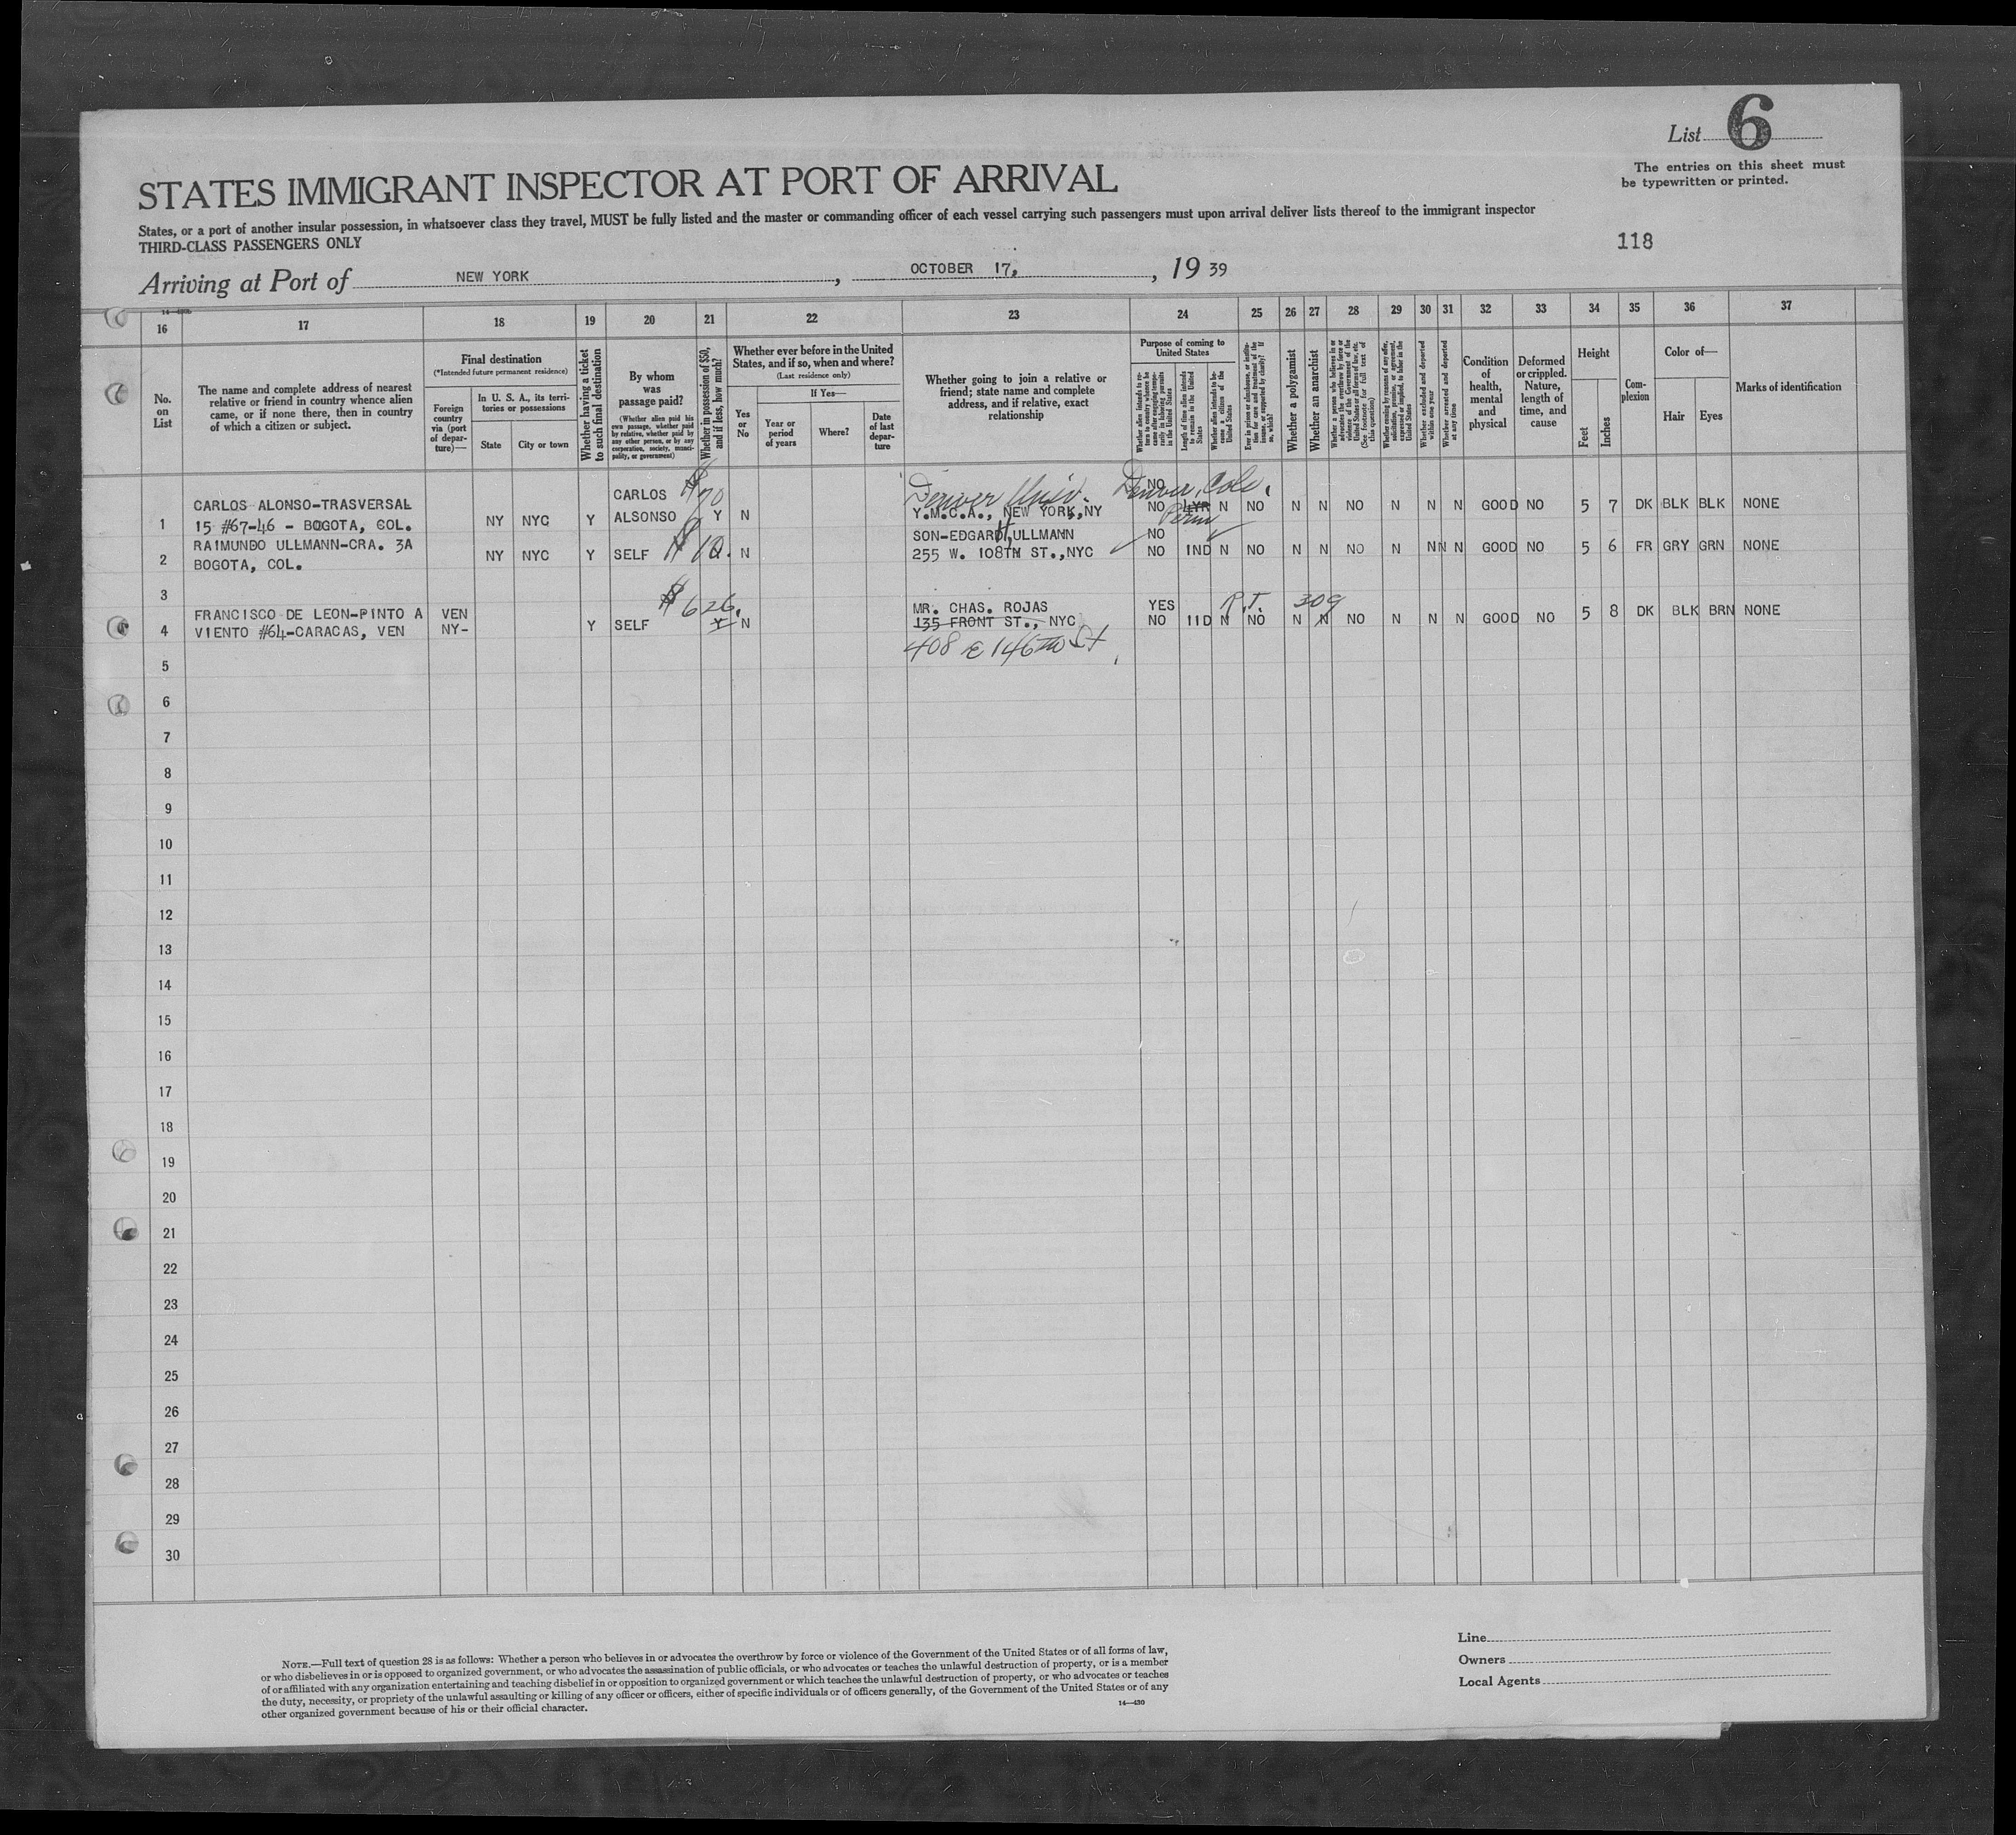 List 6
The entries on this sheet must
be typewritten or printed.
STATES IMMIGRANT INSPECTOR AT PORT OF ARRIVAL
States, or a port of another insular possession, in whatsoever class they travel, MUST be fully listed and the master or commanding officer of each vessel carrying such passengers must upon arrival deliver lists thereof to the immigrant inspector
THIRD-CLASS PASSENGERS ONLY
118
Arriving at Port of NEW YORK, OCTOBER 17, 1939
16 17 18 19 20 21 22 23 24 25 26 27 28 29 30 31 32 33 34 35 36 37
No. on List
The name and complete address of nearest
relative or friend in country whence alien
came, or if none there, then in country
of which a citizen or subject.
Final destination
(*Intended future permanent residence)
Foreign country via (port of departure)—
In U. S. A., its territories or possessions
State
City or town
Whether having a ticket to such final destination
By whom was passage paid?
(Whether alien paid his own passage, whether paid by relative, whether paid by any other person, or by any corporation, society, municipality, or government)
Whether in possession of $50, and if less, how much?
Whether ever before in the United
States, and if so, when and where?
(Last residence only)
Yes or No
If Yes—
Year or period of years
Where?
Date of last departure
Whether going to join a relative or
friend; state name and complete
address, and if relative, exact
relationship
Purpose of coming to United States
Whether alien intends to return to country whence he came after engaging temporarily in laboring pursuits in the United States
Length of time alien intends to remain in the United States
Whether alien intends to become a citizen of the United States
Ever in prison or almshouse, or institution for care and treatment of the insane, or supported by charity? If so, which?
Whether a polygamist
Whether an anarchist
Whether a person who believes in or advocates the overthrow by force or violence of the Government of the United States or all forms of law, etc. (See footnote for full text of this question)
Whether coming by reasons of any offer, solicitation, promise, or agreement, expressed or implied, to labor in the United States
Whether excluded and deported within one year
Whether arrested and deported at any time
Condition of health, mental and physical
Deformed or crippled. Nature, length of time, and cause
Height
Feet
Inches
Complexion
Color of—
Hair
Eyes
Marks of identification
$70
Denver Univ. Denver, Colo.
CARLOS ALONSO-TRASVERSAL CARLOS NO
1 15 #67-46 - BOGOTA, COL. NY NYC Y ALSONSO Y N Y.M.C.A., NEW YORK, NY NO 4YR N NO N N NO N N N GOOD NO 5 7 DK BLK BLK NONE
Perm
RAIMUNDO ULLMANN-CRA. 3A SON-EDGAR H ULLMANN NO
2 BOGOTA, COL. NY NYC Y SELF $10. N 255 W. 108TH ST., NYC NO IND N NO N N NO N NN N GOOD NO 5 6 FR GRY GRN NONE
3
$626. P.T. 309
FRANCISCO DE LEON-PINTO A VEN MR. CHAS. ROJAS YES
4 VIENTO #64-CARACAS, VEN NY- Y SELF Y N 135 FRONT ST., NYC NO 11D N NO N N NO N N N GOOD NO 5 8 DK BLK BRN NONE
408 E 146th St
5
6
7
8
9
10
11
12
13
14
15
16
17
18
19
20
21
22
23
24
25
26
27
28
29
30
NOTE.—Full text of question 28 is as follows: Whether a person who believes in or advocates the overthrow by force or violence of the Government of the United States or of all forms of law,
or who disbelieves in or is opposed to organized government, or who advocates the assassination of public officials, or who advocates or teaches the unlawful destruction of property, or is a member
of or affiliated with any organization entertaining and teaching disbelief in or opposition to organized government or which teaches the unlawful destruction of property, or who advocates or teaches
the duty, necessity, or propriety of the unlawful assaulting or killing of any officer or officers, either of specific individuals or of officers generally, of the Government of the United States or of any
other organized government because of his or their official character.
14—430
Line
Owners
Local Agents